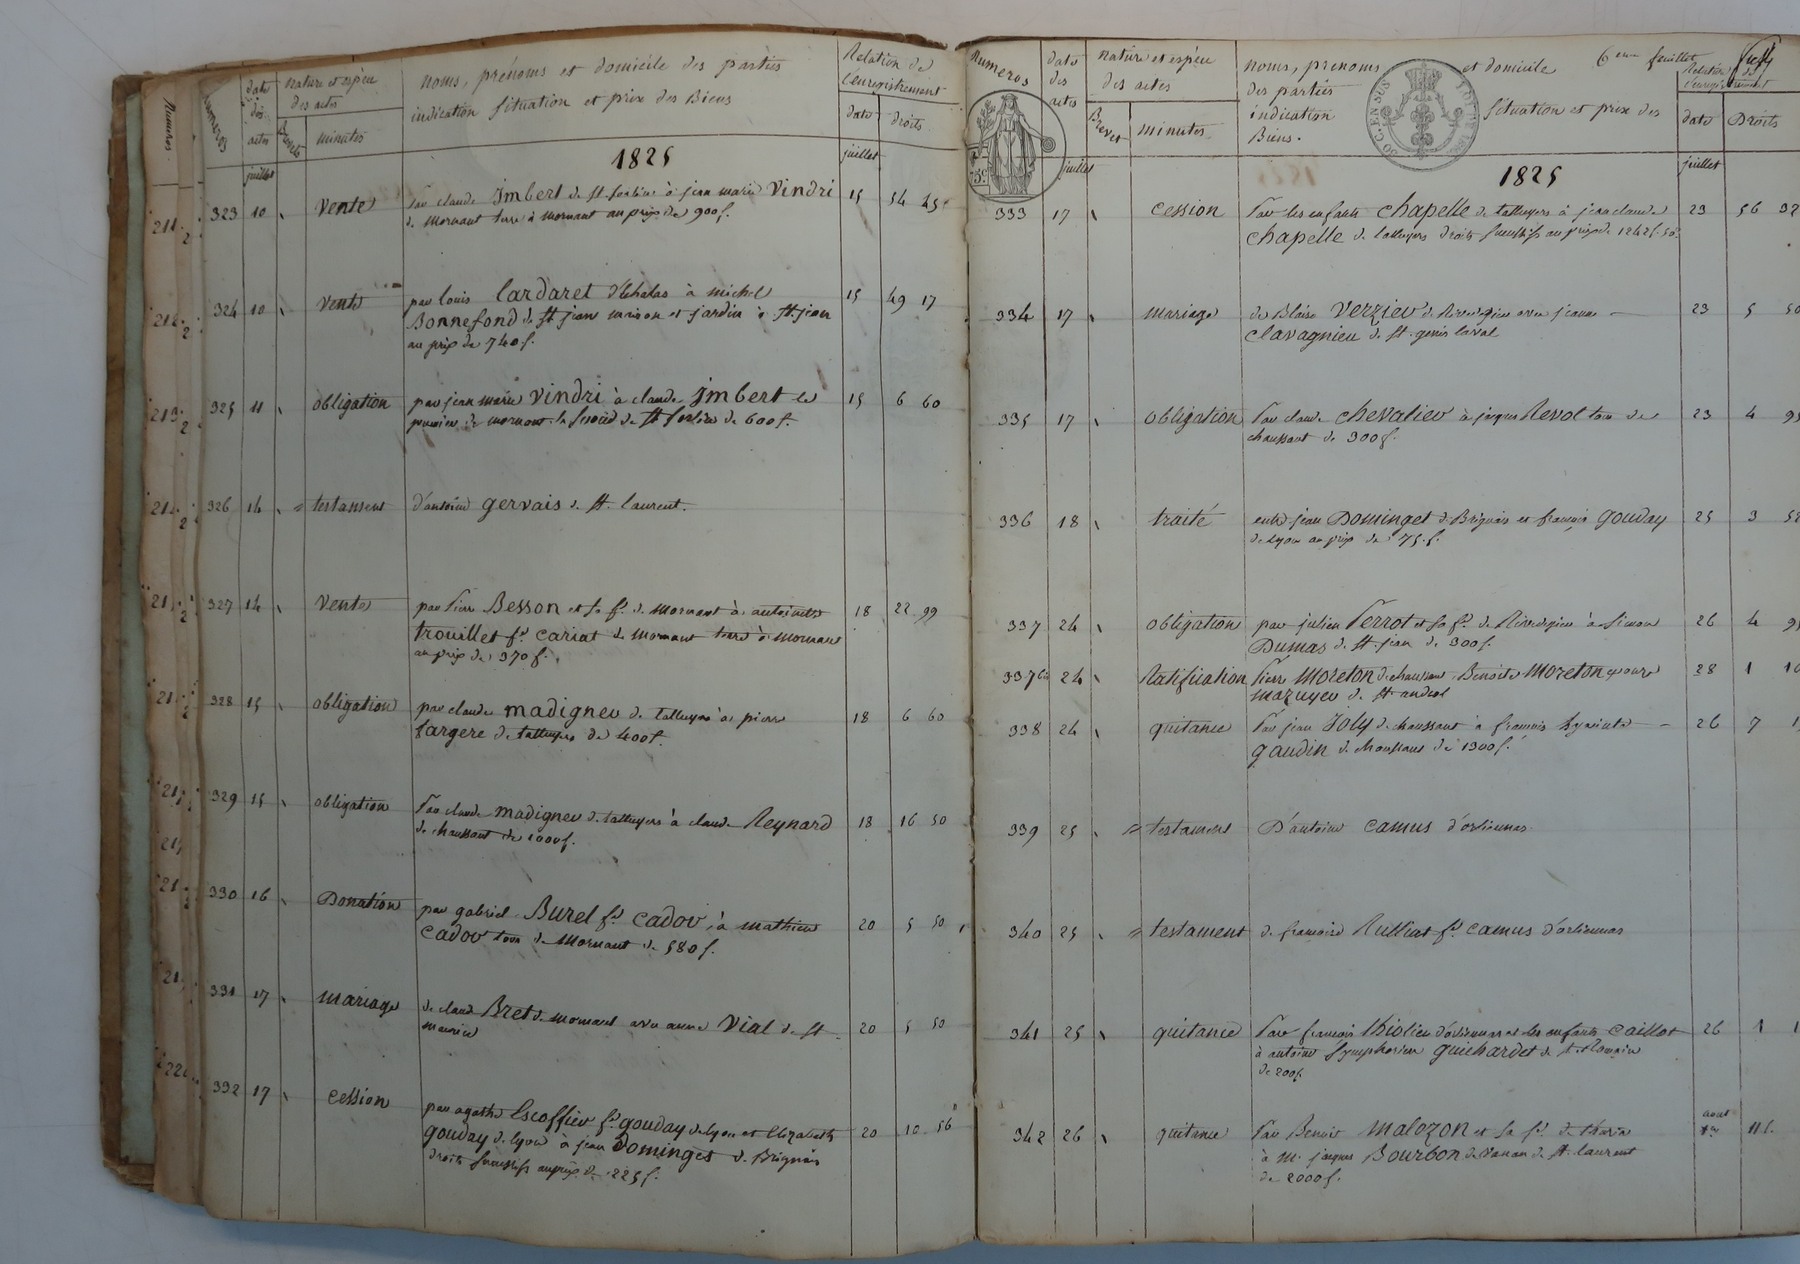 Numeros
Numeros
date des actes
nature et espèce des actes
Brevets
minutes
noms, prénoms et domicile des parties
indication situation et prix des Biens
Relation de l'enregistrement
date
droits
juillet
1825
juillet
323 10 vente par claude Imbert de St. Sorlin à jean marie Vindri 15 54 45
de Mornant terre à Mornant au prix de 900 f.
324 10 vente par louis Cardaret d'Echalas à michel 15 49 17
Bonnefond de St jean maison et jardin à St. jean
au prix de 740 f.
325 11 obligation par jean marie Vindri à claude Imbert le 15 6 60
premier de mornant le second de St Sorlin de 600 f.
326 14 testament d'antoine gervais de St. laurent.
327 14 vente par Pierre Besson et sa fe. de Mornant à antoinette 18 22 99
trouillet fe. cariat de Mornant terre à Mornant
au prix de 370 f.
328 15 obligation par claude madignier de talluyers à pierre 18 6 60
fargere de talluyers de 400 f.
329 15 obligation Par claude madignier de talluyers à claude Reynard 18 16 50
de chaussant de 1000 f.
330 16 Donation par gabriel Burel fe. cadou à mathieu 20 5 50
cadou tous de Mornant de 580 f.
331 17 mariage de claude Bret de mornant avec anne Vial de St 20 5 50
maurice
332 17 cession par agathe Escoffier fe. gouday de lyon et Elizabeth 20 10 56
gouday de lyon à jean Dominget de Brignais
droits successifs au prix de 225 f.
Numeros
date des actes
nature et espèce des actes
Brevet
minutes
noms, prenoms et domicile
des parties
indication situation et prix des
Biens.
6eme feuillet
Relation de l'enregistrement
date
Droits
juillet
1825
juillet
333 17 cession Par les enfants chapelle de talluyers à jean claude 23 56 32
chapelle de talluyers droits successifs au prix de 1242 f. 50
334 17 mariage de Blaise Verzieu de Riverie avec jeanne 23 5 50
clavagnieu de St. genis laval
335 17 obligation Par claude chevalier à jacques Revol tous de 23 4 95
chaussant de 300 f.
336 18 traité entre jean Dominget de Brignais et françois gouday 25 3
de lyon au prix de 75 f.
337 24 obligation par julien Perrot et sa fe. à Simon 26 4 95
Dumas de St. jean de 300 f.
337 bis 24 Ratification Pierre Moreton de chaussant Benoite Moreton 28 1 10
mazuyer de St andeol
338 24 quitance Par jean Joly de chaussant à françois hyacinte 26 7
gaudin de chaussant de 1300 f.
339 25 testament D'antoine camus d'orlienas
340 25 testament de françoise Rulliat fe. camus d'orlienas
341 25 quitance Par françois Thiolier d'orlienas et les enfants caillot 26 1
à antoine Symphorien guichardet de St. Romain
de 200 f.
342 26 quitance Par Benoit Malozon et sa fe. de thara aout 1er 11
à Mr. jacques Bourbon de vanan de St. laurent
de 2000 f.